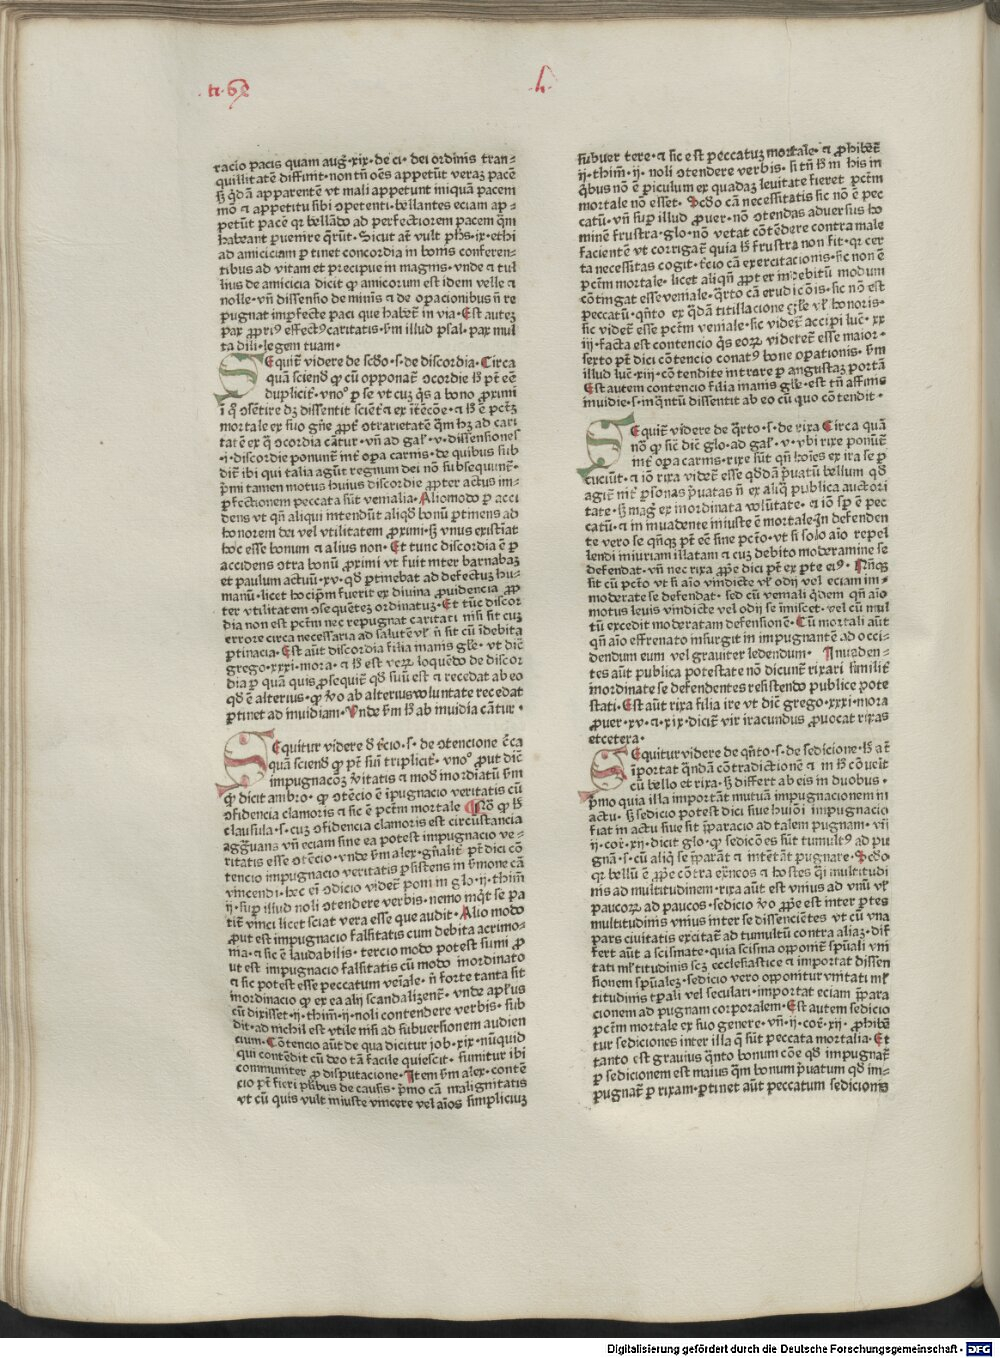 .tr.62
.h.
racio pacis quam aug̃·xix·de ci·dei ordinis tran⸗
quillitatē diffinit·non tñ oēs appetūt verāꝫ pacē
sꝫ q̄dā apparentē vt mali appetunt iniquā pacem
mō ⁊ appetitu sibi ꝯpetenti·bellantes eciam ap⸗
petūt pacē qꝛ bellādo ad perfectiorem pacem q̄m
habeant ꝑuenire q̄rūt·Sicut at̄ vult ph̄s·ix·ethi
ad amiciciam ꝑtinet concordia in bonis conferen⸗
tibus ad vitam et precipue in magnis·vnde ⁊ tul
lius de amicicia dicit ꝙ amicorum est idem velle ⁊
nolle·vñ dissensio de minis ⁊ de opacionibus ñ re
pugnat imꝑfecte paci que habet̄ in via·Est auteꝫ
pax ꝓpriꝰ effectꝰ caritatis·ẜm illud psal·pax mul
ta dili·legem tuam·
Sequit̄ videre de scd̄o·s·de discordia·Circa
quā sciend̄ ꝙ cū opponat̄ ꝯcordie hꝫ pt̄ eē
duplicit̄·vnoº ꝑ se vt cuꝫ q̄s a bono ꝓximi
ī qº ꝯsētire dꝫ dissentit scient̄ ⁊ ex ītēcōe·⁊ hꝫ ē pctꝫ
mortale ex suo gn̄e ꝓpt̄ ꝯtrarietatē q̄m hꝫ ad cari
tatē ex q̄ ꝯcordia cāt̄ur·vñ ad gal̄·v·dissensiones
·i·discordie ponunt̄ int̄ oꝑa carnis·de quibus sub
dit̄ ibi qui talia agūt regnum dei nō ꝯsequunt̄·
p̄mi tamen motus huius discordie ꝓpter actus im⸗
ꝑfectionem peccata sūt venialia·Aliomodo ꝑ acci
dens vt qñ aliqui intendūt aliqd̄ bonū ꝑtinens ad
honorem dei vel vtilitatem ꝓximi·sꝫ vnus existiat
hoc esse bonum ⁊ alius non·Et tunc discordia ē ꝑ
accidens ꝯtra bonū ꝓximi vt fuit inter barnabaꝫ
et paulum actuū·xv·qd̄ ꝑtinebat ad defectuꝫ hu⸗
manū·licet hoc ip̄m fuerit ex divina ꝓuidencia ꝓp
ter vtilitatem ꝯsequētēꝫ ordinatuꝫ·Et tūc discor
dia non est pctm̄ nec repugnat caritati nisi sit cuꝫ
errore circa necessaria ad salutē vl̄ ñ sit cū īdebita
ꝑtinacia·Est aūt discordia filia inanis gl̄e·vt dic̄
grego·xxxi·mora·⁊ hꝫ est veꝝ loquēdo de discor
dia ꝑ quā quis ꝓsequit̄ qd̄ suū est ⁊ recedat ab eo
qd̄ ē alterius·ꝙ v̄o ab alterius voluntate recedat
ꝑtinet ad inuidiam·Vnde ẜm hꝫ ab inuidia cāt̄ur·
Sequitur videre d̄ t̄cio·s·de ꝯtencione c̄ca
quā sciend̄ ꝙ pt̄ sūi triplicit̄·vnoº ꝓut dic̄
impugnacōeꝫ v̄itatis ⁊ modū inordiatū ẜm
ꝙ dicit ambro·ꝙ ꝯtēcio ē īpugnacio veritatis cū
ꝯfidencia clamoris ⁊ sic ē pctm̄ mortale Nō ꝙ hꝫ
clausula·s·cuꝫ ꝯfidencia clamoris est circūstancia
agg̃uans vñ eciam sine ea potest impugnacio ve⸗
ritatis esse ꝯtēcio·vnde ẜm alex·gn̄alit̄ pt̄ dici cō
tencio impugnacio veritatis ꝑsistens in ẜmone cā
vincendi·hec ei ꝯdicio videt̄ poni in glo·ij·thim̄
ij·suꝑ illud noli ꝯtendere verbis·nemo inq̄t se pa
tit̄ vinci licet sciat vera esse que audit·Alio modo
ꝓut est impugnacio falsitatis cum debita acrimo⸗
nia·⁊ sic ē laudabilis·tercio modo potest sumi ꝓ
ut est impugnacio falsitatis cū modo inordinato
⁊ sic potest esse peccatum veiale·ñ forte tanta sit
inordinacio ꝙ ex ea alij scandalizent̄·vnde ap̄lus
cū dixisset·ij·thim̄·ij·noli contendere verbis·sub
dit·ad nichil est vtile nisi ad subuersionem audien
cium·Contencio aūt de qua dicitur job·xix·nūquid
qui contēdit cū deo tā facile quiescit·sumitur ibi
communiter ꝓ disputacione·Item ẜm alex·contē
cio pt̄ fieri pluribus de causis·p̄mo cā malignitatis
vt cū quis vult iniuste vincere vel aīos simpliciuꝫ
subuertere·⁊ sic est peccatuꝫ mortale ⁊ ꝓhibet̄
ij·thim̄·ij·noli ꝯtendere verbis·si tñ hꝫ in his in
q̄bus nō ē ꝑiculum ex quadaꝫ leuitate fieret pctm̄
mortale nō esset·Scd̄o cā necessitatis sic nō ē pec
catū·vñ suꝑ illud ꝓuer·nō ꝯtendas aduersus ho
minē frustra·glo·nō vetat cōtēdere contra male
facientē vt corrigat̄ quia hꝫ frustra non fit·qꝛ cer
ta necessitas cogit·t̄cio cā exercitacionis·sic non ē
pctm̄ mortale·licet aliqñ ꝓpter indebitū modum
cōtingat esse veniale·q̄rto cā erudicōis·sic nō est
peccatū·qn̄to ex q̄dā titillacione gl̄e vl̄ honoris·
sic videt̄ esse pctm̄ veniale·sic videt̄ accipi luc̄·xx
iij·facta est contencio q̄s eoꝝ videret̄ esse maior·
sexto pt̄ dici cōtencio conatꝰ bone oꝑationis·ẜm
illud luc̄·xiij·cōtendite intrare ꝑ angustaꝫ portā
Est autem contencio filia inanis gl̄e·est tñ affinis
inuidie·s·inq̄ntū dissentit ab eo cū quo cōtendit·
Sequit̄ videre de q̄rto·s·de rixa Circa quā
nō ꝙ sic dic̄ glo·ad gal̄·v·vbi rixe ponūt̄
int̄ oꝑa carnis·rixe sūt qñ hoīes ex ira se ꝑ
cuciūt·⁊ iō rixa videt̄ esse qd̄dā p̄uatū bellum qd̄
agit̄ int̄ ꝑsonas p̄uatas ñ ex aliq̄ publica auctori
tate·sꝫ mag̃ ex inordinata volūtate·⁊ iō sꝑ ē pec
catū·⁊ in inuadente iniuste ē mortale·In defenden
te vero se qñqꝫ pt̄ eē sine pctō·vt si solo aīo repel
lendi iniuriam illatam ⁊ cuꝫ debito moderamine se
defendat·vñ nec rixa ꝓṗe dici pt̄ ex ꝑte eiꝰ·Nn̄qꝫ
sit cū pctō vt si aīo vindicte vl̄ odij vel eciam im⸗
moderate se defendat·sed cū veniali q̄dem qñ aīo
motus leuis vindicte vel odij se īmiscet·vel cū mul
tū excedit moderatam defensionē·Cū mortali aūt
qñ aīo effrenato insurgit in impugnantē ad occi⸗
dendum eum vel grauiter ledendum· Inuaden⸗
tes aūt publica potestate nō dicunt̄ rixari similit̄
inordinate se defendentes resistendo publice pote
stati·Est aūt rixa filia ire vt dic̄ grego·xxxi·mora
ꝓuer·xv·⁊·xix·dicit̄ vir iracundus ꝓuocat rixas
etcetera·
Sequitur videre de qn̄to·s·de sedicione·hꝫ at̄
īportat q̄ndā cōtradictionē ⁊ in hꝫ cōueit
cū bello et rixa·sꝫ differt ab eis in duobus·
p̄mo quia illa important mutuā impugnacionem in
actu·sꝫ sedicio potest dici siue huiōi impugnacio
fiat in actu siue sit p̄paracio ad talem pugnam·vñ
ij·cor̄·xij·dicit glo·ꝙ sedicōes sūt tumultꝰ ad pu
gnā·s·cū aliq̄ se p̄parāt ⁊ intētāt pugnare·Scd̄o
qꝛ bellū ē ꝓṗe cōtra ex̄ncos ⁊ hostes q̄i multitudi
nis ad multitudinem·rixa aūt est vnius ad vnū vl̄
paucoꝝ ad paucos·sedicio v̄o ꝓṗe est inter ꝑtes
multitudinis vnius inter se dissencientes vt cū vna
pars ciuitatis excitat̄ ad tumultū contra aliaꝫ·dif
fert aūt a scismate·quia scisma opponit̄ spūali vni
tati ml̄titudinis scꝫ ecclesiastice ⁊ importat dissen
sionem spūaleꝫ·sedicio vero opponitur vnitati ml̄
titudinis tꝑali vel seculari·importat eciam p̄para
cionem ad pugnam corporalem·Est autem sedicio
pctm̄ mortale ex suo genere·vñ·ij·cor̄·xij·ꝓhibē
tur sediciones inter illa q̄ sūt peccata mortalia·Et
tanto est grauius qn̄to bonum cōe qd̄ impugnat̄
ꝑ sedicionem est maius q̄m bonum p̄uatum qd̄ im⸗
pugnat̄ ꝑ rixam·ꝑtinet aūt peccatum sedicionis
Digitalisierung gefördert durch die Deutsche Forschungsgemeinschaft - DFG